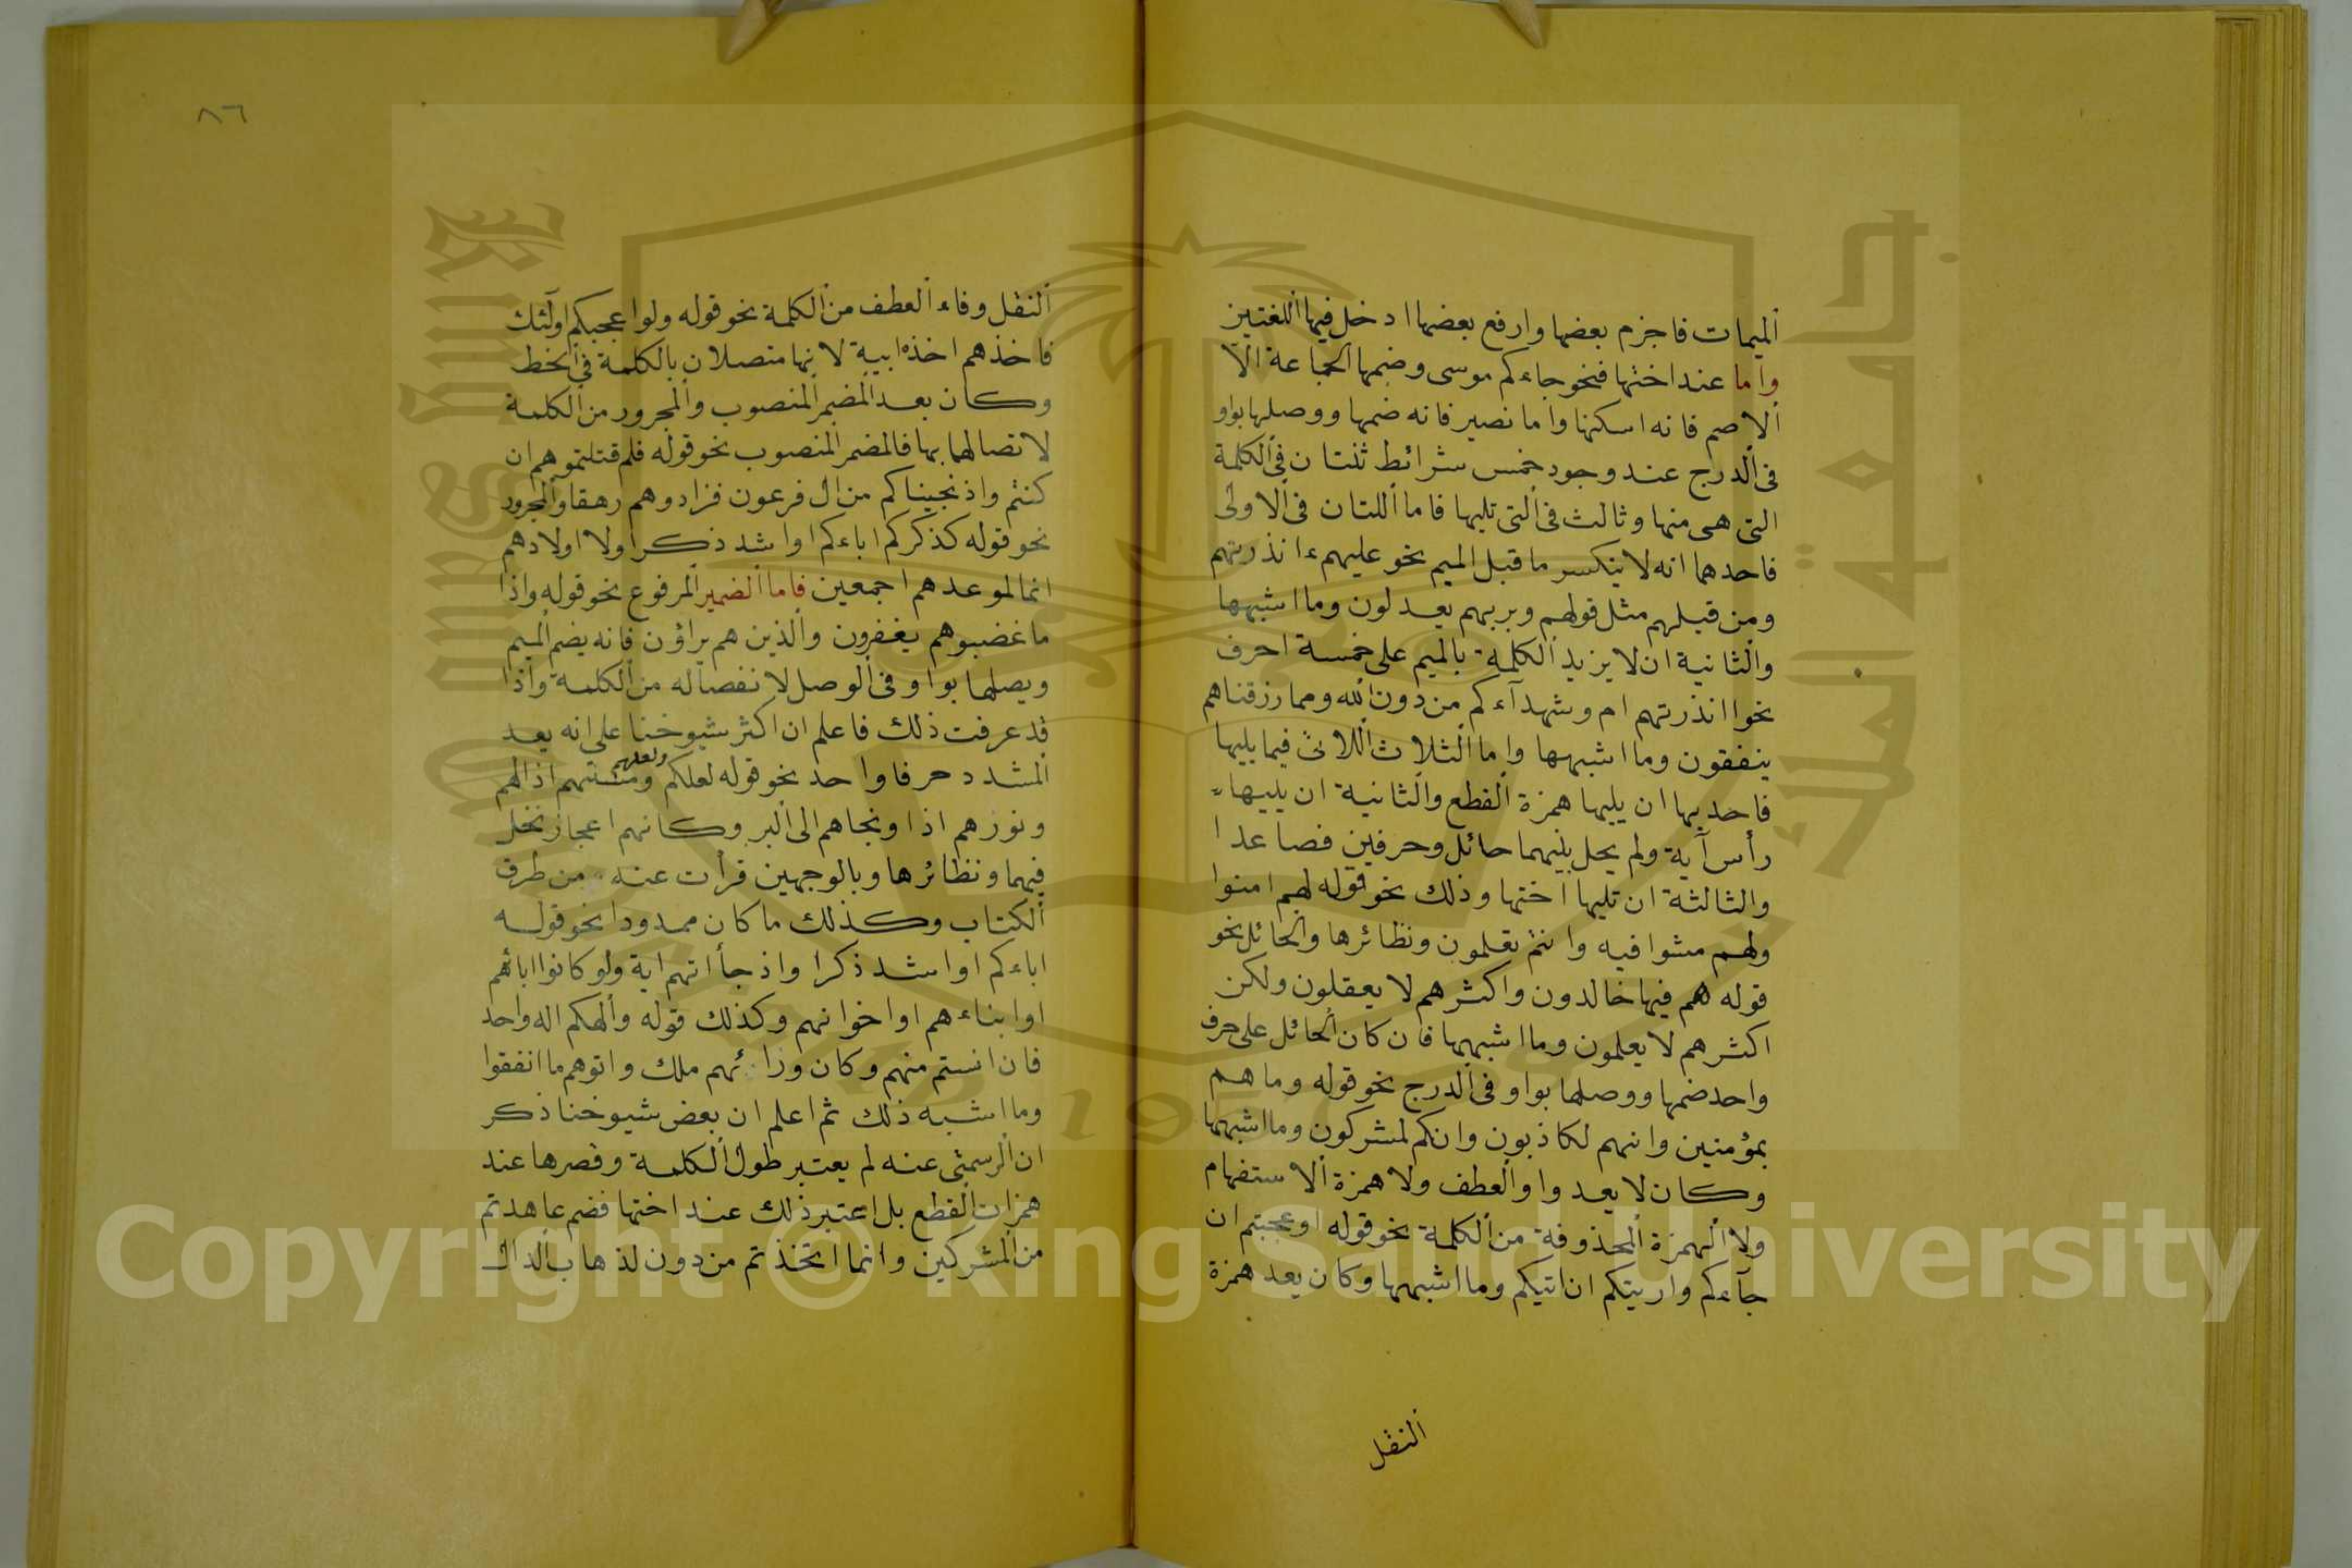 الميمات فاجزم بعضها وارفع بعضها ادخل فيها اللغتين
واما عند اختها فنحو جاءكم موسى وضمها الجماعة الا
الاصم فانه اسكنها واما نصير فانه ضمها ووصلها بواو
فى الدرج عند وجود خمس شرائط ثنتان فى الكلمة
التى هى منها وثالث فى التى تليها فاما اللتان فى الاولى
فاحدهما انه لا ينكسر ما قبل الميم نحو عليهم ءانذرتهم
ومن قبلهم مثل قولهم وبربهم يعدلون وما اشبهها
والثانية ان لا يزيد الكلمة بالميم على خمسة احرف
نحو اانذرتهم ام وشهدآءكم من دون الله ومما رزقناهم
ينفقون وما اشبهها واما الثلاث اللاتى فيما يليها
فاحديها ان يليها همزة القطع والثانية ان يليها
رأس آية ولم يحل بينهما حائل وحرفين فصاعدا
والثالثة ان تليها اختها وذلك نحو قوله لهم امنوا
ولهم مشوا فيه وانتم تعلمون ونظائرها والحائل نحو
قوله هم فيها خالدون واكثرهم لا يعقلون ولكن
اكثرهم لا يعلمون وما اشبهها فان كان الحائل على حرف
واحد ضمها ووصلها بواو فى الدرج نحو قوله وما هم
بمؤمنين وانهم لكاذبون وانكم لمشركون وما اشبهها
وكان لا يعد واو العطف ولا همزة الاستفهام
ولا الهمزة المحذوفة من الكلمة نحو قوله اوعجبتم ان
جآءكم واريتكم ان اتيكم وما اشبهها وكان يعد همزة
النقل
٨٦
النقل وفاء العطف من الكلمة نحو قوله ولو اعجبكم اولئك
فاخذهم اخذة ابية لانها متصلان بالكلمة فى الخط
وكان بعد المضمر المنصوب والمجرور من الكلمة
لاتصالهما بها فالمضمر المنصوب نحو قوله فلم قتلتموهم ان
كنتم واذ نجيناكم من ال فرعون فزادوهم رهقا والمجرور
نحو قوله كذكركم اباءكم او اشد ذكرا ولا اولادهم
انما لموعدهم اجمعين فاما الضمير المرفوع نحو قوله واذا
ما غضبوهم يغفرون والذين هم يراؤن فانه يضم الميم
ويصلها بواو فى الوصل لانفصاله من الكلمة واذا
قد عرفت ذلك فاعلم ان اكثر شيوخنا على انه يعد
المشدد حرفا واحد نحو قوله لعلكم ولعلهم ومستهم اذا لهم
ونوزهم اذا ونجاهم الى البر وكانهم اعجاز نخل
فيهما ونظائرها وبالوجهين قرأت عنه من طرق
الكتاب وكذلك ما كان ممدودا نحو قوله
اباءكم او اشد ذكرا واذ جأاتهم اية ولو كانوا ابائهم
او ابناءهم او اخوانهم وكذلك قوله والهكم اله واحد
فان انستم منهم وكان وزائهم ملك واتوهم ما انفقوا
وما اشبه ذلك ثم اعلم ان بعض شيوخنا ذكر
ان الرسمئى عنه لم يعتبر طول الكلمة وقصرها عند
همزات القطع بل اعتبر ذلك عند اختها فضم عاهدتم
من المشركين وانما اتخذتم من دون لذهاب الدال
Copyright © King Saud University